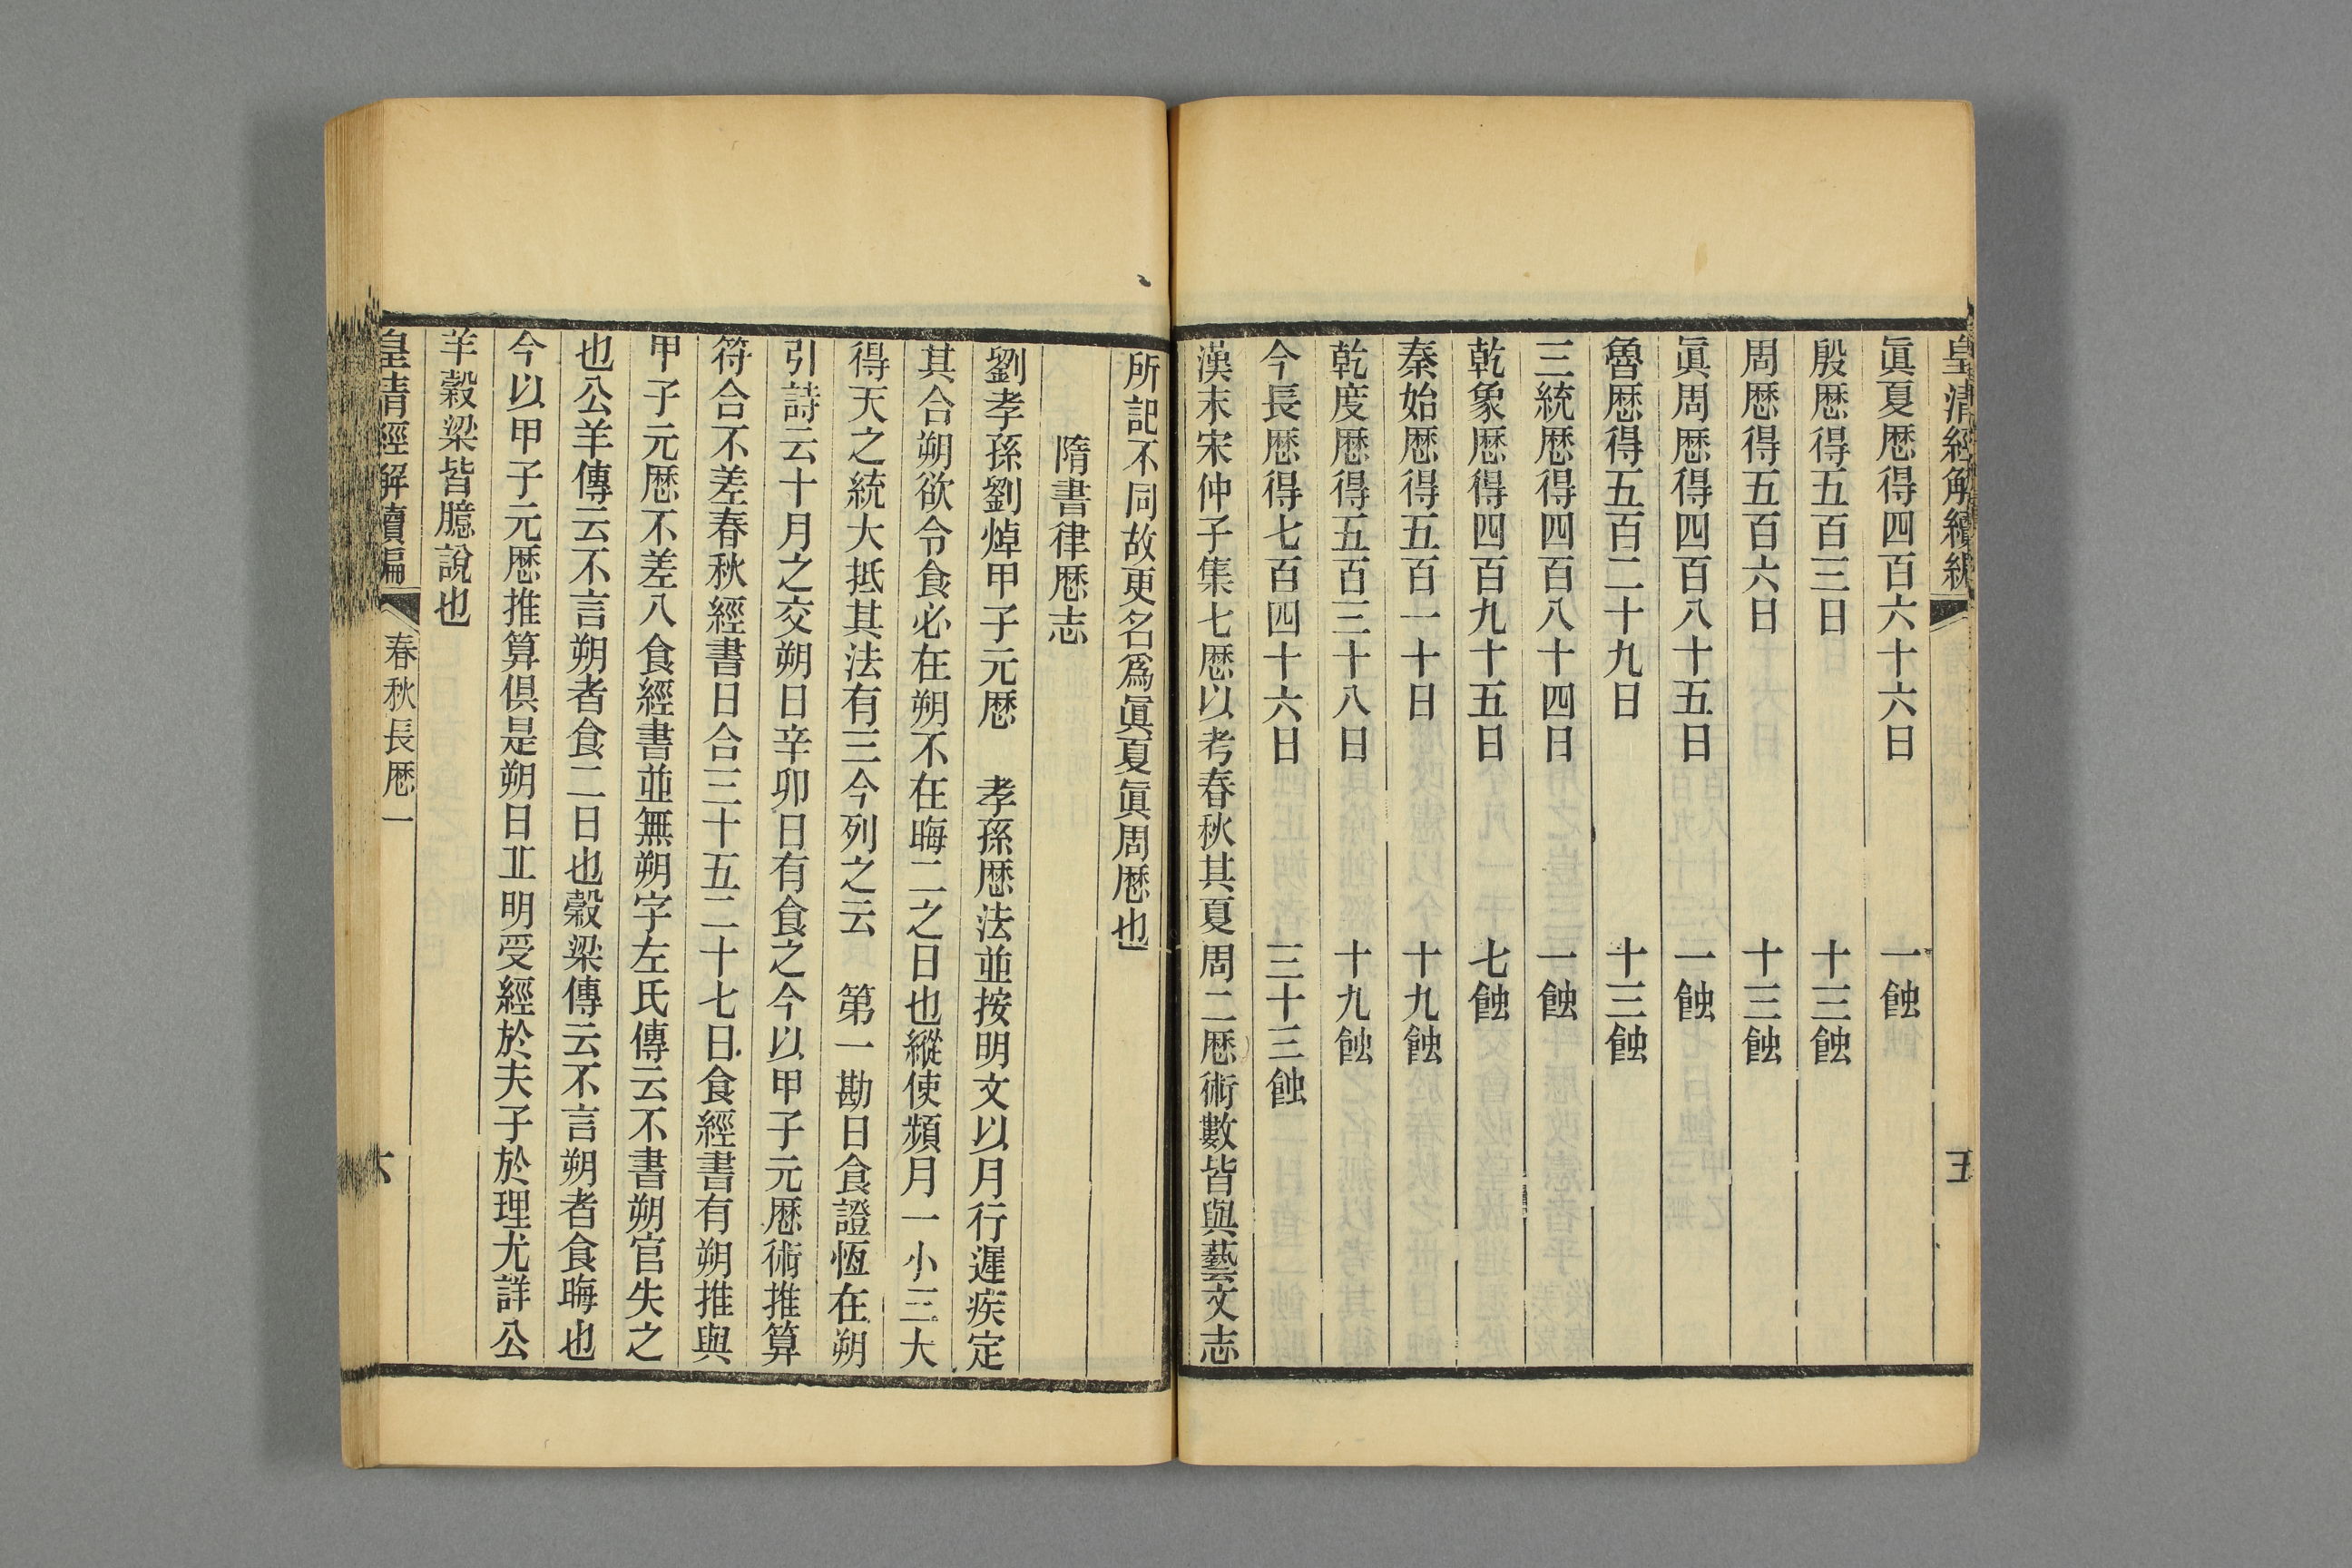 皇清經解續編
五
眞夏厯得四百六十六日 一蝕
殷厯得五百三日 十三蝕
周厯得五百六日 十三蝕
眞周厯得四百八十五日 一蝕
魯厯得五百二十九日 十三蝕
三統厯得四百八十四日 一蝕
乾象厯得四百九十五日 七蝕
秦始厯得五百一十日 十九蝕
乾度厯得五百三十八日 十九蝕
今長厯得七百四十六日 三十三蝕
漢末宋仲子集七厯以考春秋其夏周二厯術數皆與藝文志
所記不同故更名爲眞夏眞周厯也
隋書律厯志
劉孝孫劉焯甲子元厯 孝孫厯法並按明文以月行遲疾定
其合朔欲令食必在朔不在晦二之日也縱使頻月一小三大
得天之統大抵其法有三今列之云 第一勘日食證恆在朔
引詩云十月之交朔日辛卯日有食之今以甲子元厯術推算
符合不差春秋經書日合三十五二十七日食經書有朔推與
甲子元厯不差八食經書並無朔字左氏傳云不書朔官失之
也公羊傳云不言朔者食二日也穀梁傳云不言朔者食晦也
今以甲子元厯推算俱是朔日丠明受經於夫子於理尤詳公
羊穀梁皆臆說也
皇清經解續編
春秋長厯一
六